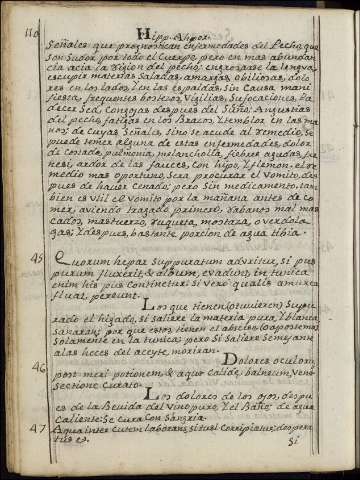 110 Hipp. Aphor.
Señales que prognostican enfermedades del Pecho, que
son Sudor por todo el Cuerpo, pero en mas abundan
cia acia la Region del pecho: engrosarse la lengua,
escupir materias Saladas, amargas, ó biliosas, dolo
res en los lados, Y en las espaldas Sin Causa mani
fiesta, frequentes bostezos, Vigilias, Sufocaciones, Pa
decer Sed, Congojas despues del Sueño; Angustias
del pecho, fatigas en los Brazos, Y temblor en las ma
nos; de cuyas Señales, sino se acude al remedio, se
puede temer alguna de estas enfermedades, dolor
de Costado, pulmonia, melancholia, fiebres agudas, fre
nesi, ardor de las fauces, Con hipo, Y flemon. el re
medio mas oportuno, Sera procurar el Vomito, des
pues de haver Cenado; pero Sin medicamento, tam
bien es Util el Vomito por la mañana antes de co
mer, aviendo tragado primero, Rabanos mal mas
cados, mastuerzo, ruqueta, mostaza, o verdola
gas; Y despues, bastante porcion de agua tibia.
45 Quorum hepar Suppuratum aduritur, si pus
purum fluxerit, & album, evadunt, in tunica
enim his pus Continetur: si vero qualis amurca
fluat, pereunt.
Los que tienen (ò tuvieren) Supu
rado el higado, si saliere la materia pura, Y blanca,
Sanaran; por que estos, tienen el absceso, (o apostema)
Solamente en la tunica; pero Si Saliere Semejante
a las heces del aceyte, moriran.
46 Dolores oculorum,
post meri potionem, & aquæ Calidæ, balneum, venæ
sectione Curato.
Los dolores de los ojos, despu
es de la Bevida del Vino puro, Y el Baño de agua
Caliente: Se cura Con Sangria.
47 Aqua inter cutem laborans, si tussi Corripiatur, despera
tus es.
Si